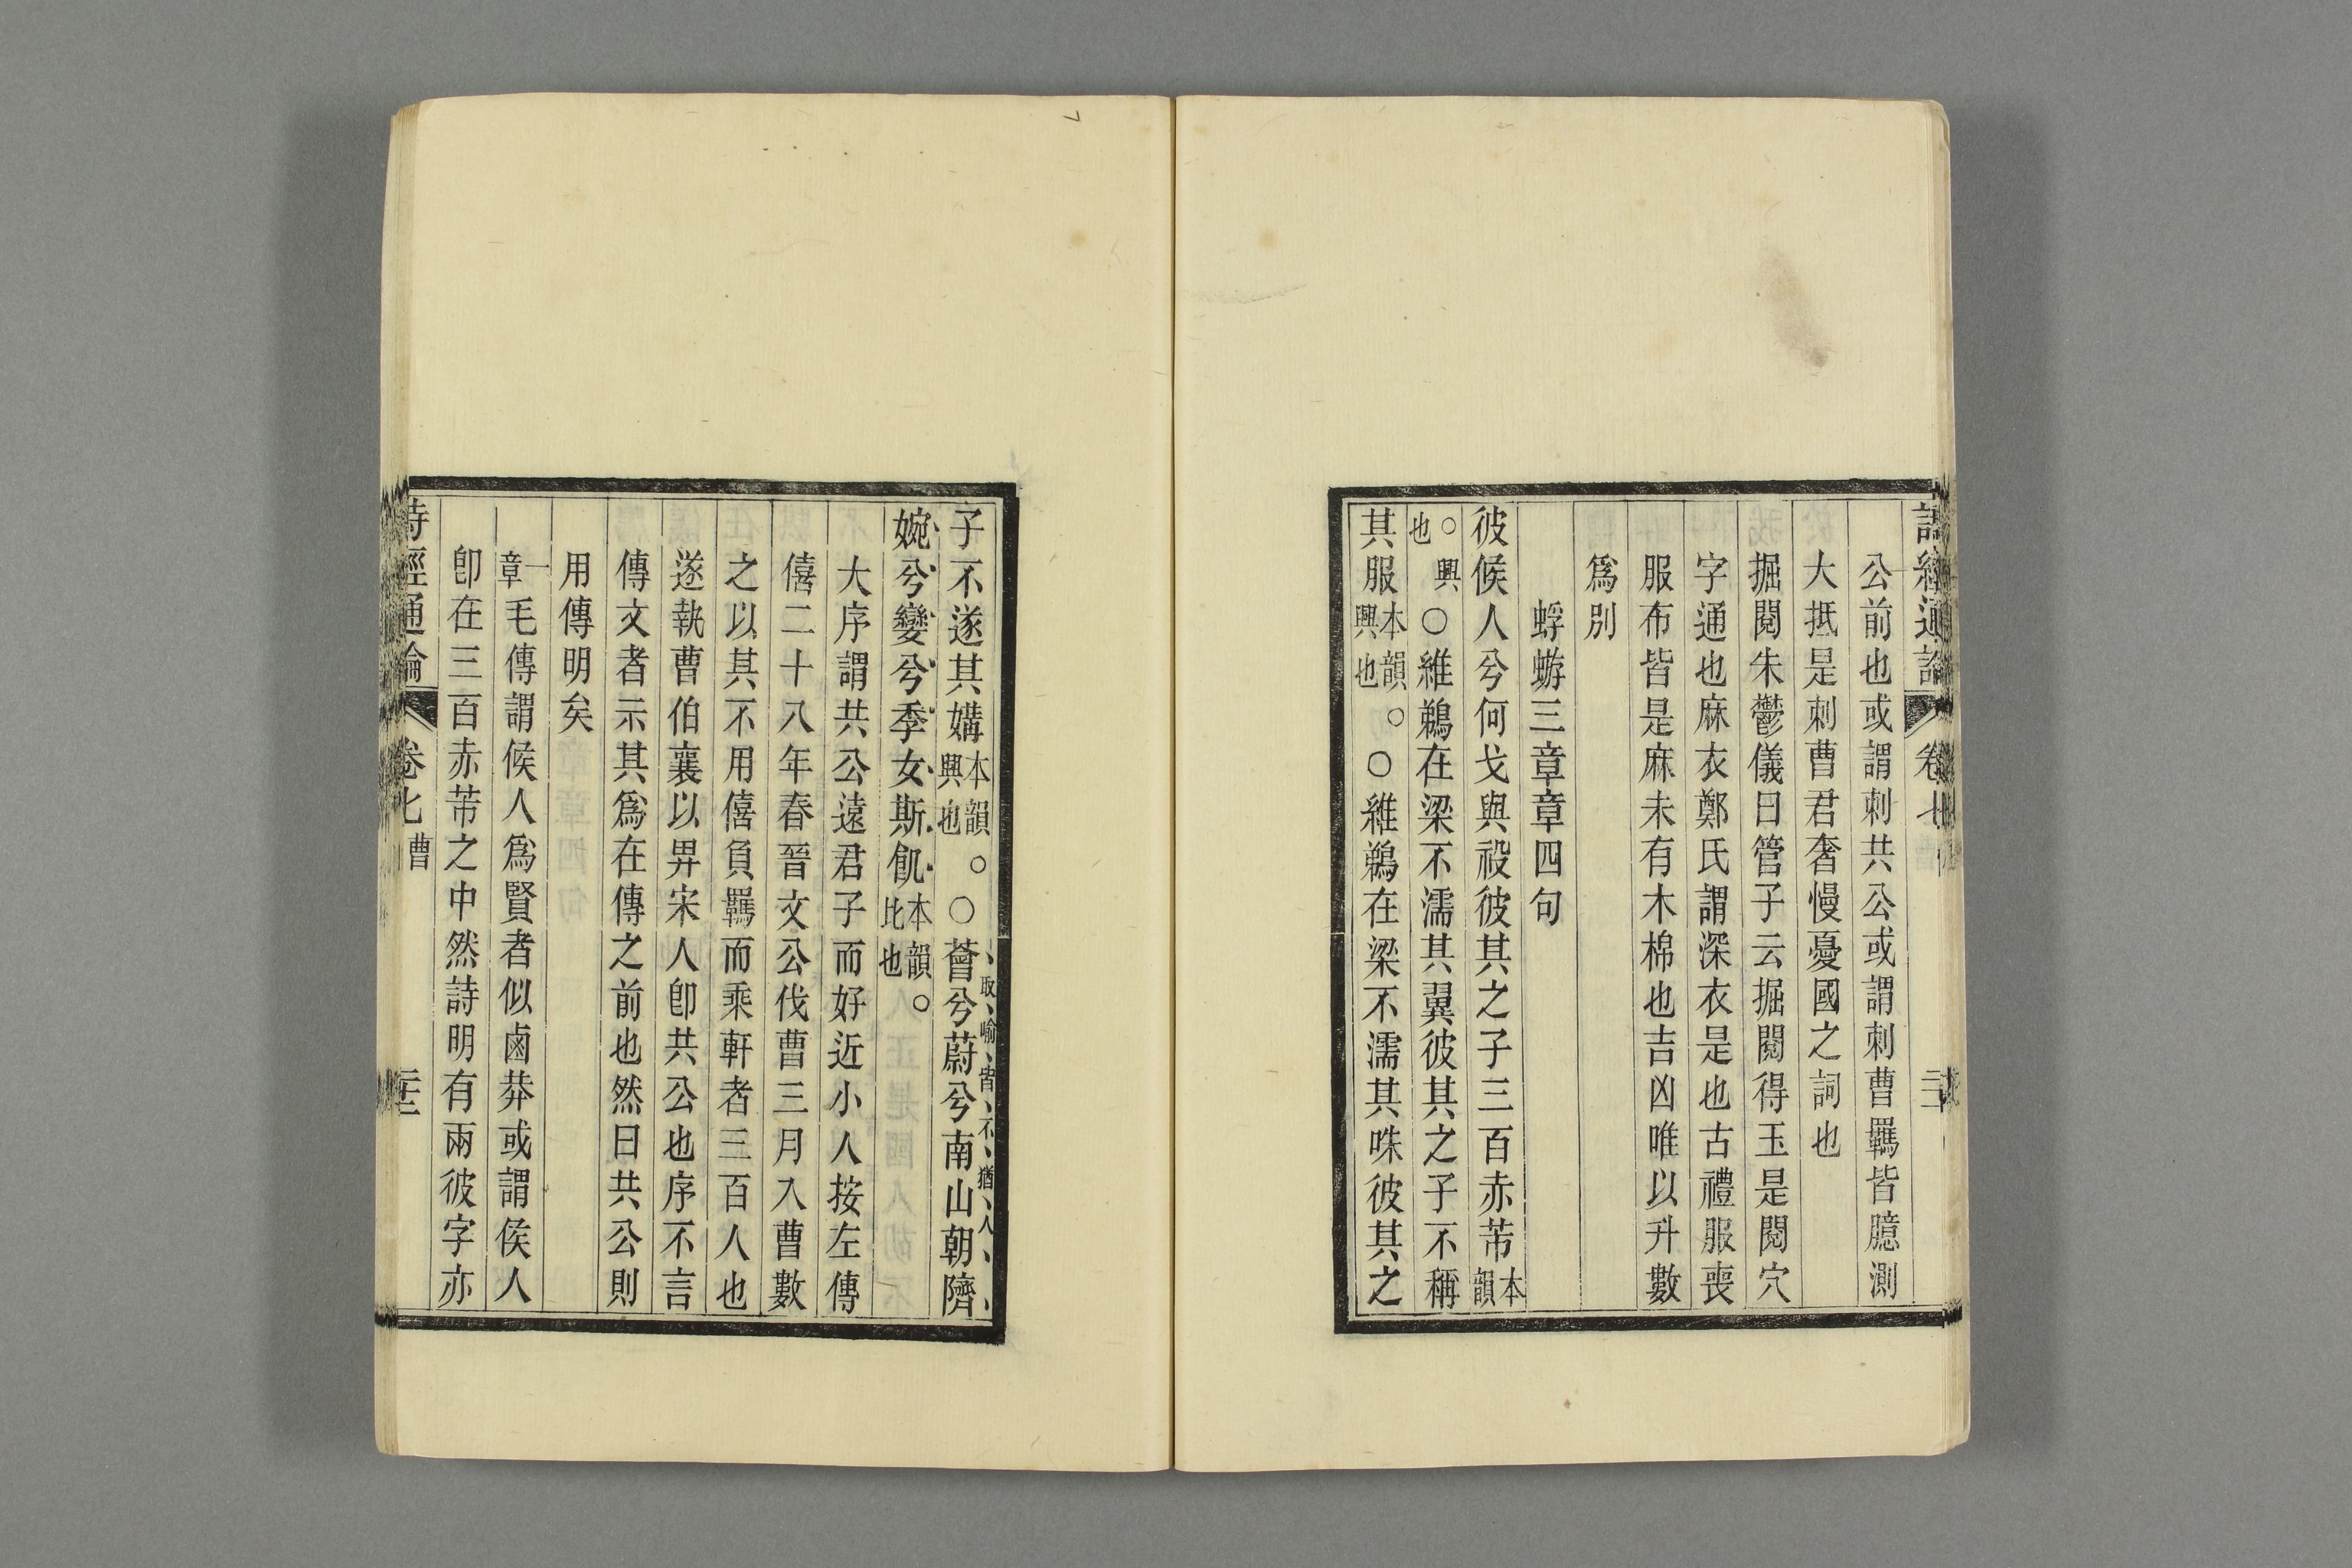 詩經通論 卷七
公前也或謂刺共公或謂刺曹羈皆臆測
大抵是刺曹君奢慢憂國之詞也
掘閱朱鬱儀曰管子云掘閱得玉是閱穴
字通也麻衣鄭氏謂深衣是也古禮服喪
服布皆是麻未有木棉也吉凶唯以升數
爲別
蜉蝣三章章四句
彼候人兮何戈與祋彼其之子三百赤芾本韻
○興也○維鵜在梁不濡其翼彼其之子不稱
其服本韻興也○○維鵜在梁不濡其咮彼其之
子不遂其媾本韻興也○○薈兮蔚兮南山朝隮
取喻皆不猶人
婉兮孌兮季女斯飢本韻比也○
大序謂共公遠君子而好近小人按左傳
僖二十八年春晉文公伐曹三月入曹數
之以其不用僖負羈而乘軒者三百人也
遂執曹伯襄以畀宋人卽共公也序不言
傳文者示其爲在傳之前也然曰共公則
用傳明矣
一章毛傳謂候人爲賢者似鹵莽或謂侯人
卽在三百赤芾之中然詩明有兩彼字亦
詩經通論 卷七 曹